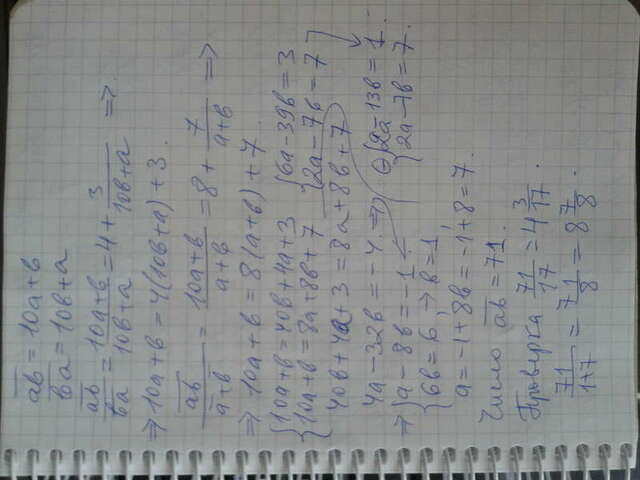 ab = 10a+b
ba = 10b+a
ab/ba = (10a+b)/(10b+a) = 4 + 3/(10b+a) ⇒
⇒ 10a+b = 4(10b+a)+3.
ab/(a+b) = (10a+b)/(a+b) = 8 + 7/(a+b) ⇒
⇒ 10a+b = 8(a+b)+7.
{10a+b = 40b+4a+3 {6a-39b = 3
{10a+b = 8a+8b+7 {2a-7b = 7
40b+4a+3 = 8a+8b+7
4a-32b = -4 ⇒ ⊖{2a-13b = 1.
⇒ {a-8b = -1 {2a-7b = 7.
{6b = 6 ⇒ b = 1
a = -1+8b = -1+8 = 7.
Число ab = 71.
Проверка 71/17 = 4 3/17
71/(1+7) = 71/8 = 8 7/8.